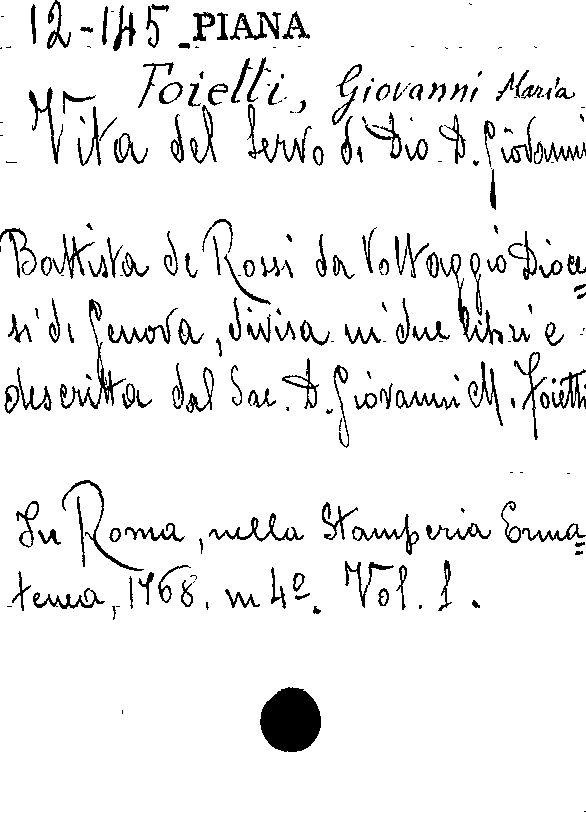 12-145 PIANA
Toietti, Giovanni Maria
Vita del Servo di Dio D. Giovanni
Battista de Rossi da Voltaggio Dioce=
si di Genova, divisa in due libri e
descritta dal Sac. D. Giovanni M. Toietti
In Roma, nella Stamperia Erma=
tenea, 1768. in 4º. Vol. 1.